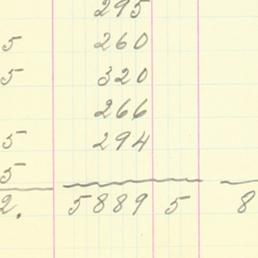 295
5 260
5 320
266
5 294
5
2. 5889 5 8